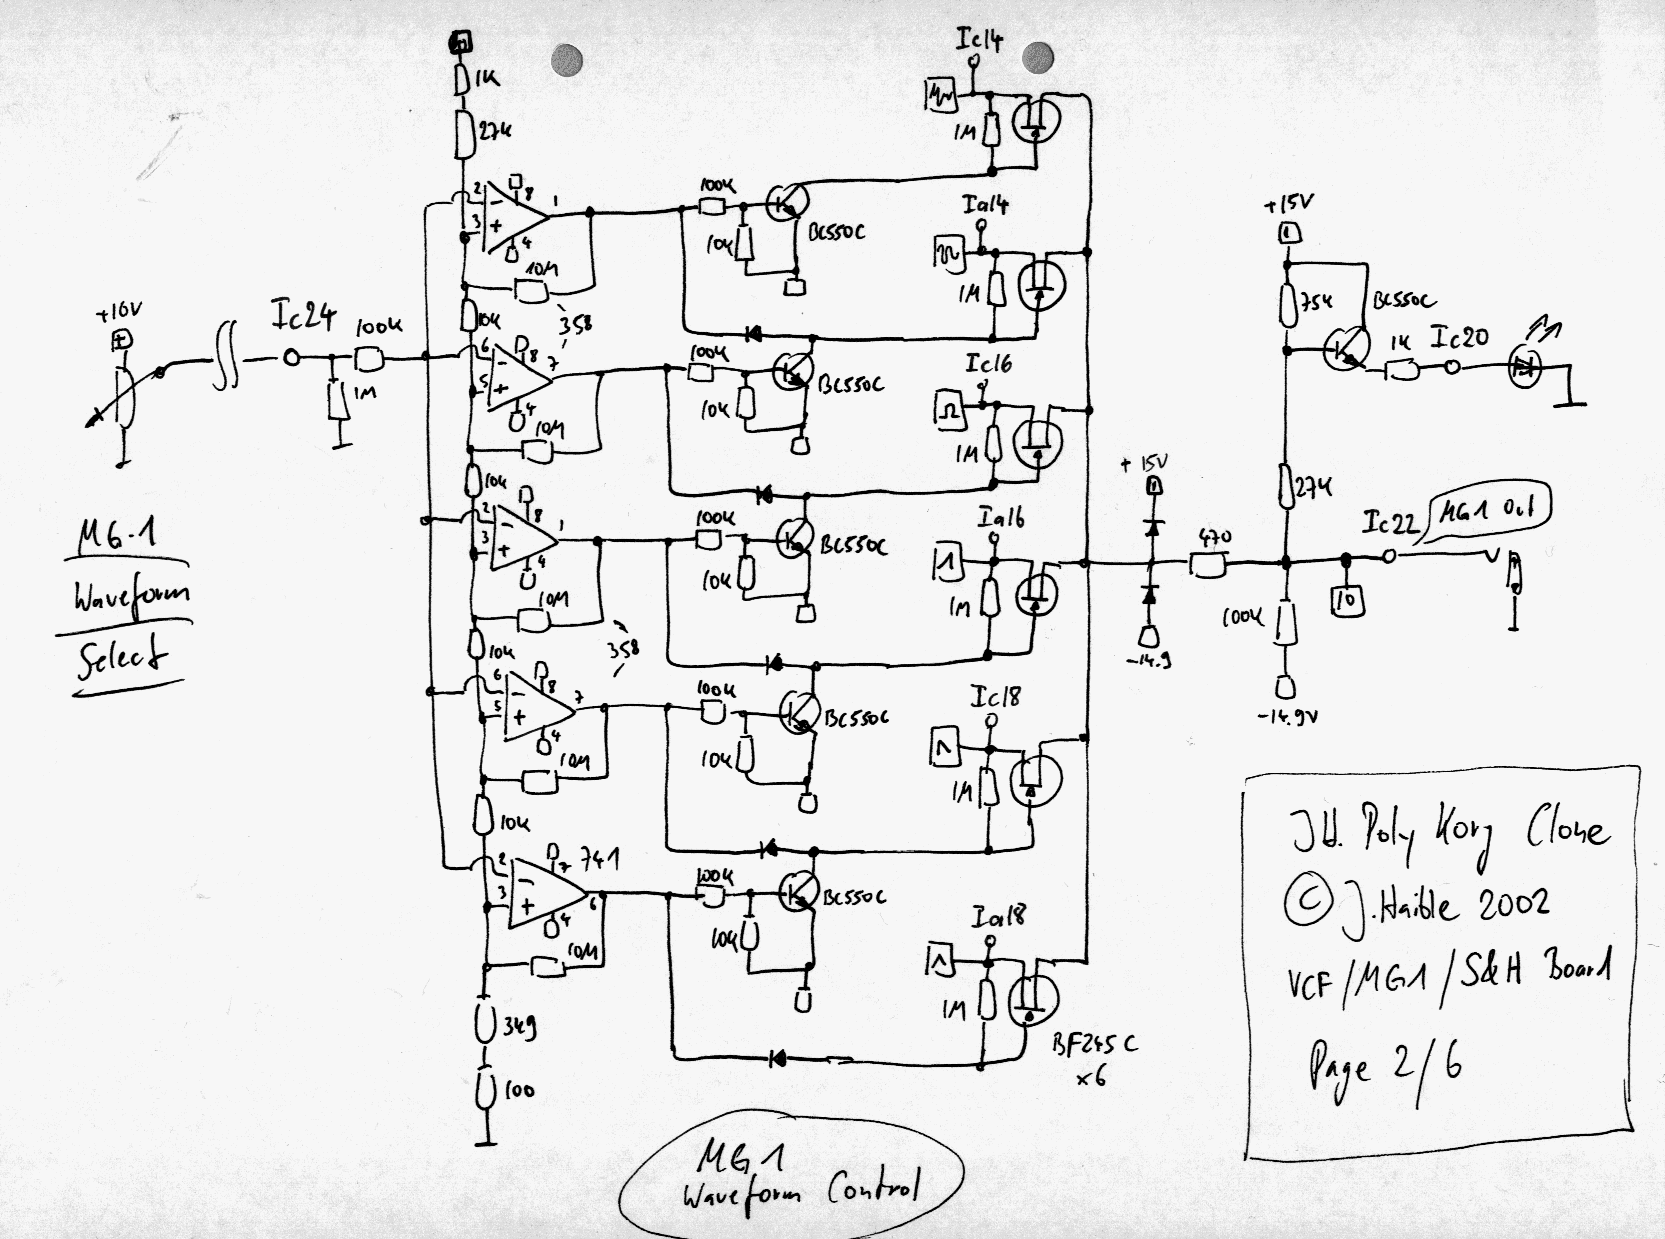 1K
27K
2
8
1
3
4
10M
358
10K
100K
10K
BC550C
Ic14
1M
Ia14
1M
+10V
Ic24
100K
1M
6
8
7
5
4
10M
10K
100K
10K
BC550C
Ic16
1M
2
8
1
3
4
10M
358
10K
100K
10K
BC550C
Ia16
1M
6
8
7
5
4
10M
10K
100K
10K
BC550C
Ic18
1M
2
7
741
3
4
6
10M
349
100
100K
10K
BC550C
Ia18
1M
BF245C
x6
+15V
75K
BC550C
1K
Ic20
27K
+15V
470
-14.9
Ic22
MG1 Out
10
100K
-14.9V
MG-1
Waveform
Select
MG1
Waveform Control
JH. Poly Korg Clone
© J. Haible 2002
VCF/MG1/S&H Board
Page 2/6